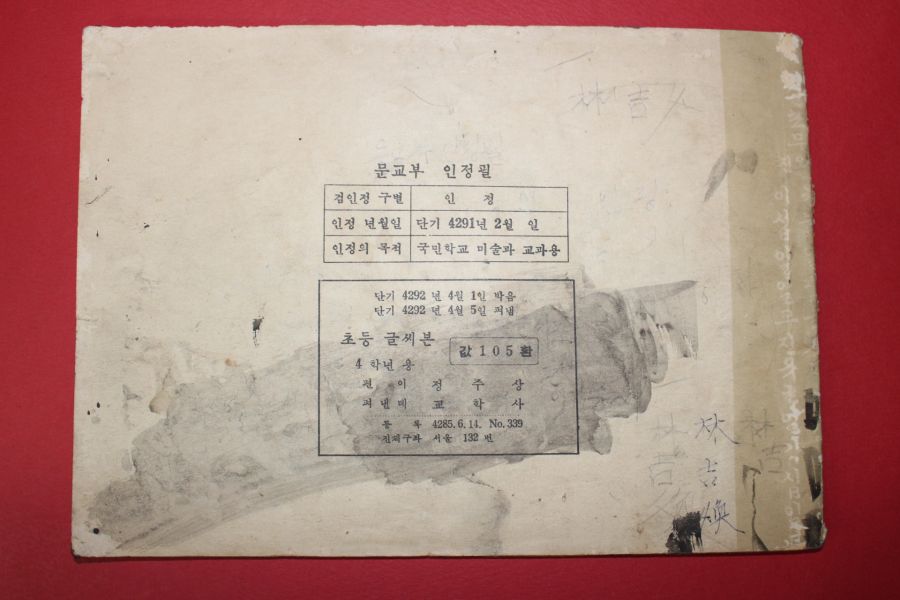 문교부 인정필
검인정 구별 인 정
인정 년월일 단기 4291년 2월 일
인정의 목적 국민학교 미술과 교과용
단기 4292 년 4월 1일 박음
단기 4292 년 4월 5일 펴냄
초등 글씨본
4 학년 용
값 105 환
편 이 정 주 상
펴낸데 교 학 사
등 록 4285.6.14. No.339
진체구좌 서울 132 번
林吉
林吉煥
林吉